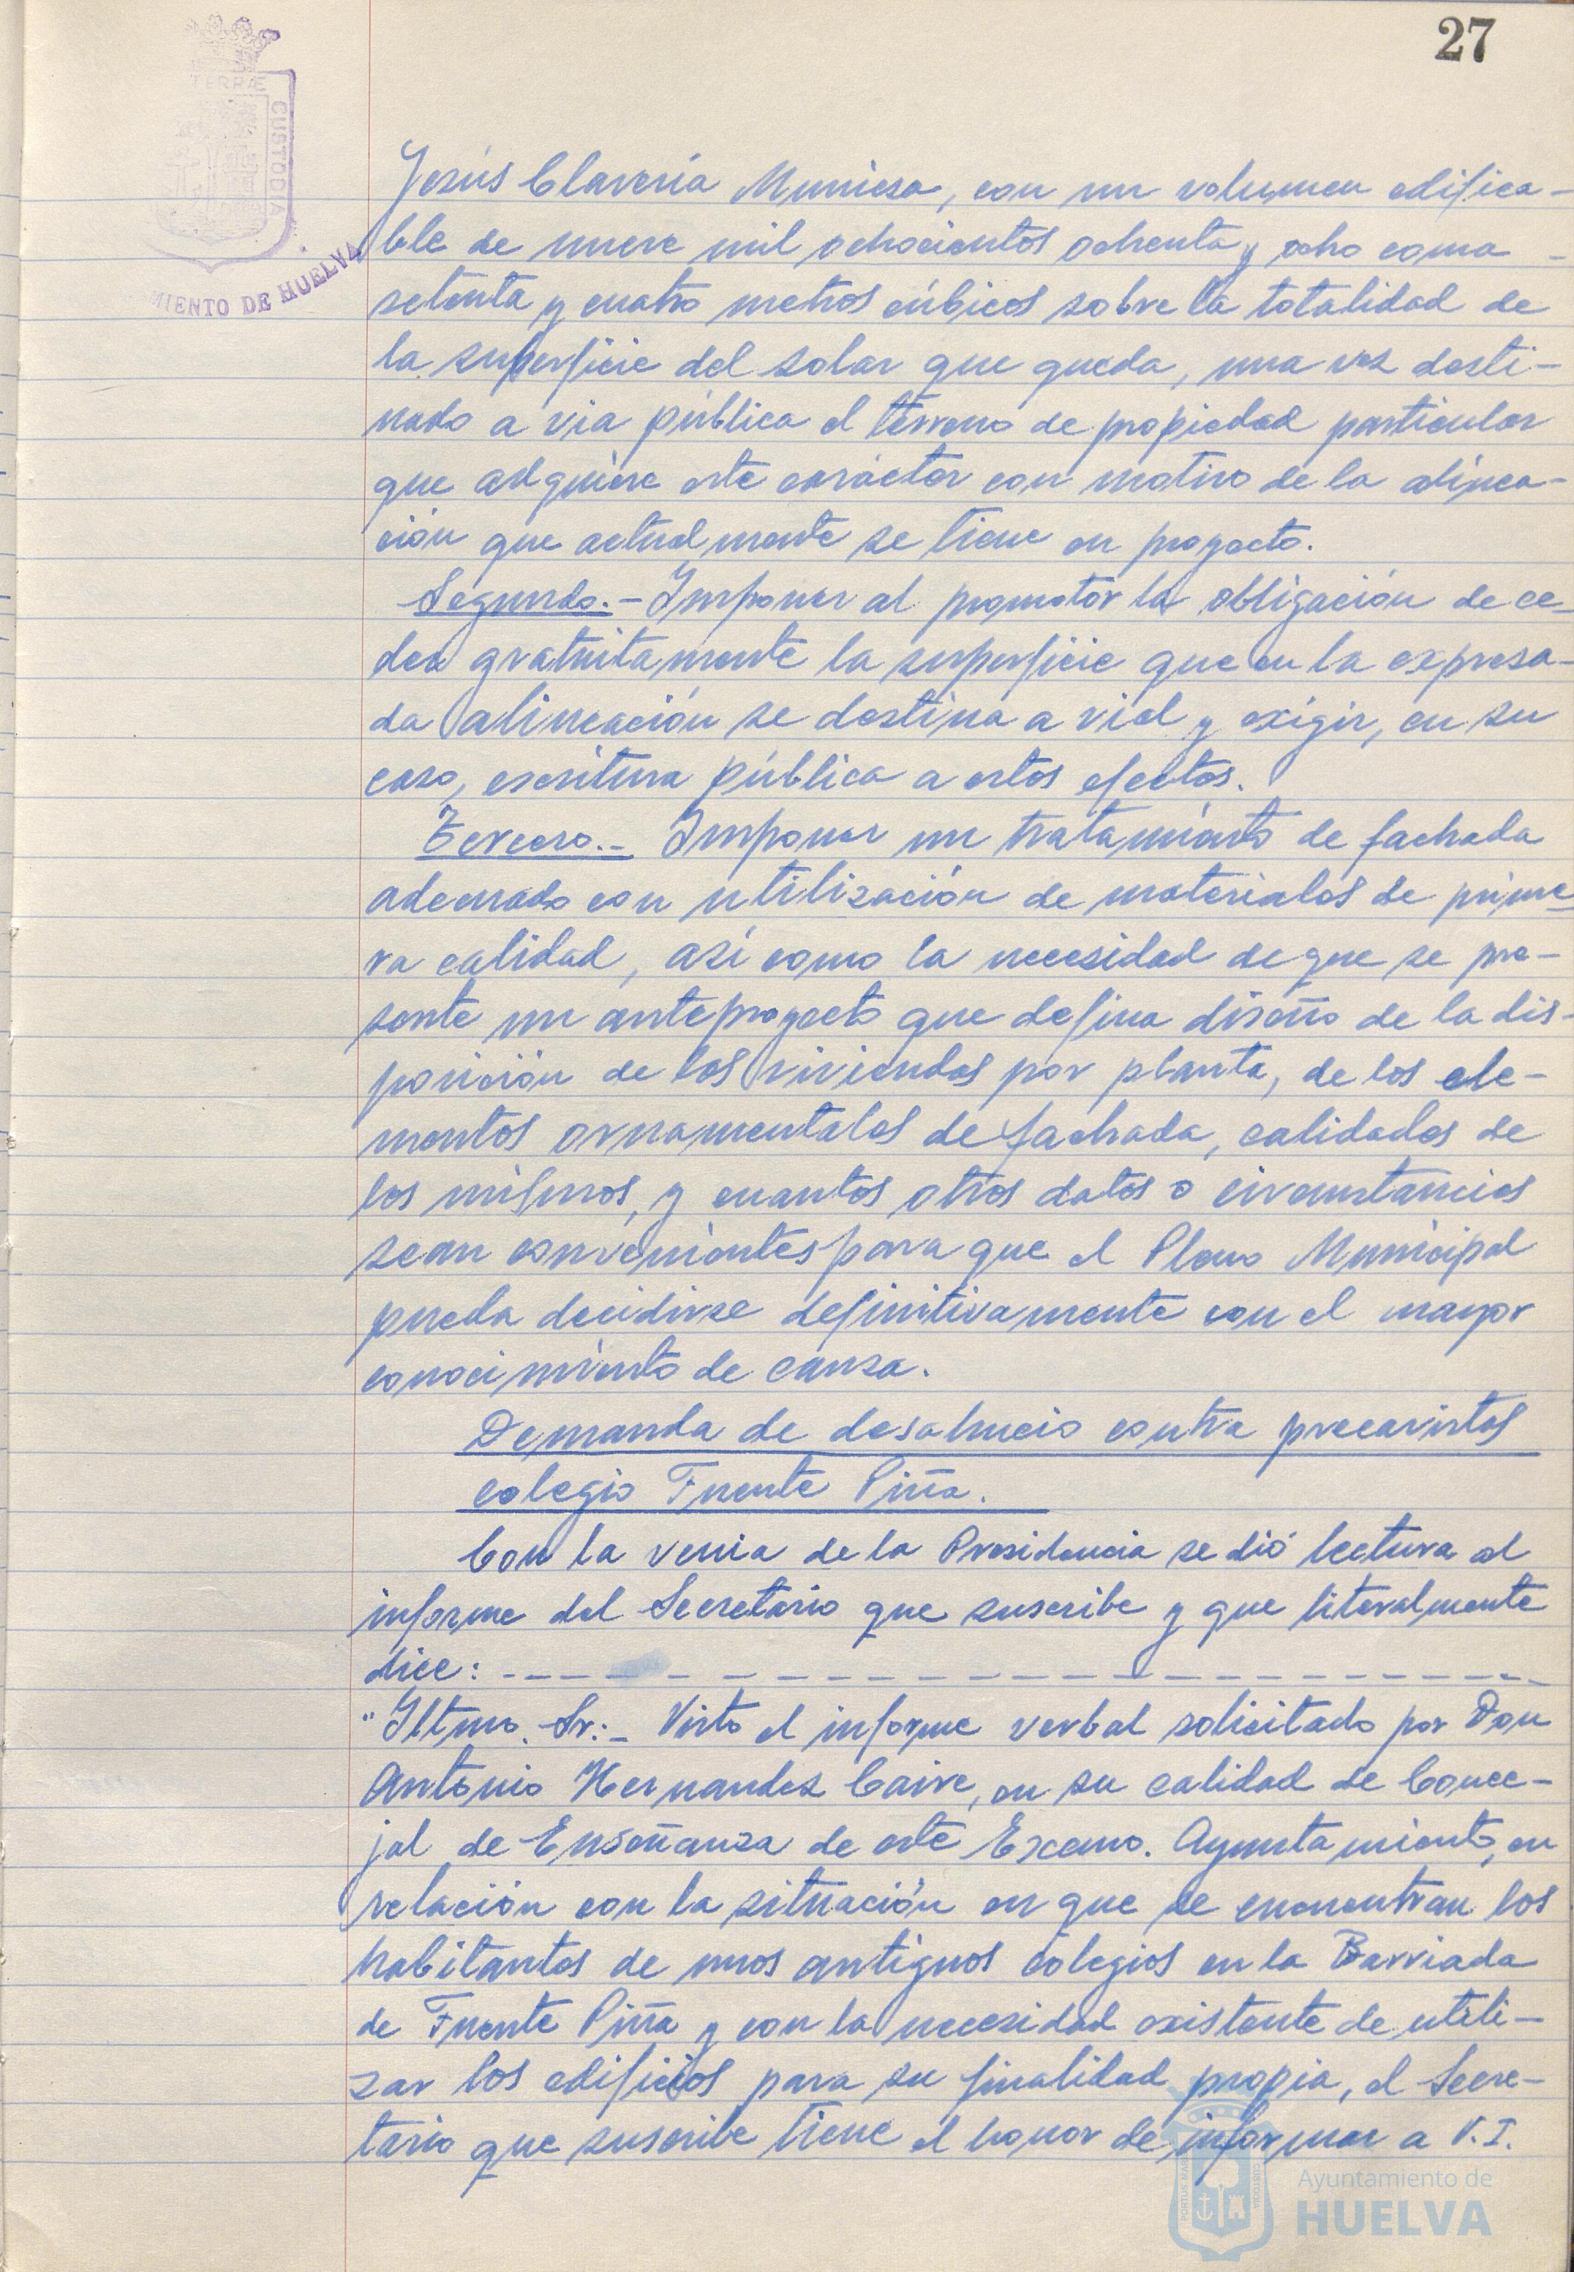 27
TERRÆ
CUSTODIA
MIENTO DE HUELVA
Jesús Clavería Muniesa, con un volumen edifica-
ble de nueve mil ochocientos ochenta y ocho coma -
setenta y cuatro metros cúbicos sobre la totalidad de
la superficie del solar que queda, una vez desti-
nado a via pública el terreno de propiedad particular
que adquiere este carácter con motivo de la alinea-
ción que actualmente se tiene en proyecto.
Segundo.- Imponer al promotor la obligación de ce-
der gratuitamente la superficie que en la expresa-
da alineación se destina a vial y exigir, en su
caso, escritura pública a estos efectos.
Tercero.- Imponer un tratamiento de fachada
adecuado con utilización de materiales de prime-
ra calidad, así como la necesidad de que se pre-
sente un anteproyecto que defina diseño de la dis-
posición de las viviendas por planta, de los ele-
mentos ornamentales de fachada, calidades de
los mismos, y cuantos otros datos o circunstancias
sean convenientes para que el Pleno Municipal
pueda decidirse definitivamente con el mayor
conocimiento de causa.
Demanda de desahucio contra precaristas
colegio Fuente Piña.
Con la venia de la Presidencia se dió lectura al
informe del Secretario que suscribe y que literalmente
dice: - - - - - - - - - - - - - - - - - - - -
"Iltmo. Sr:- Visto el informe verbal solicitado por Don
Antonio Hernandez Caire, en su calidad de Conce-
jal de Enseñanza de este Excmo. Ayuntamiento, en
relación con la situación en que se encuentran los
habitantes de unos antiguos colegios en la Barriada
de Fuente Piña y con la necesidad existente de utili-
zar los edificios para su finalidad propia, el Secre-
tario que suscribe tiene el honor de informar a V.I.
Ayuntamiento de
HUELVA